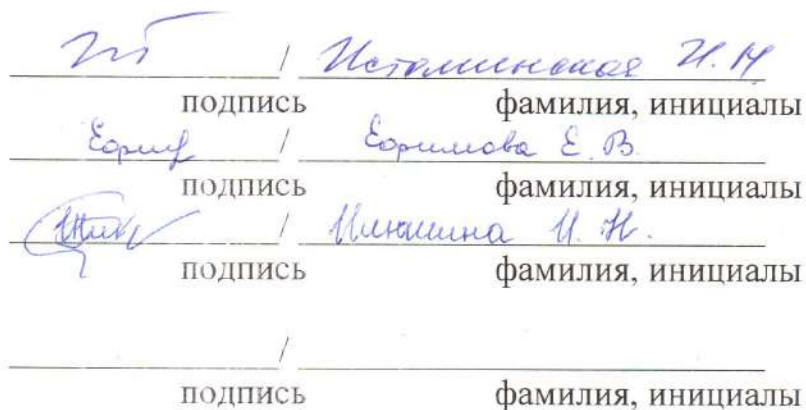 / Истоминская И. Н
подпись фамилия, инициалы
/ Ефимова Е. В.
подпись фамилия, инициалы
/ Илюшина И. Н.
подпись фамилия, инициалы
/
подпись фамилия, инициалы